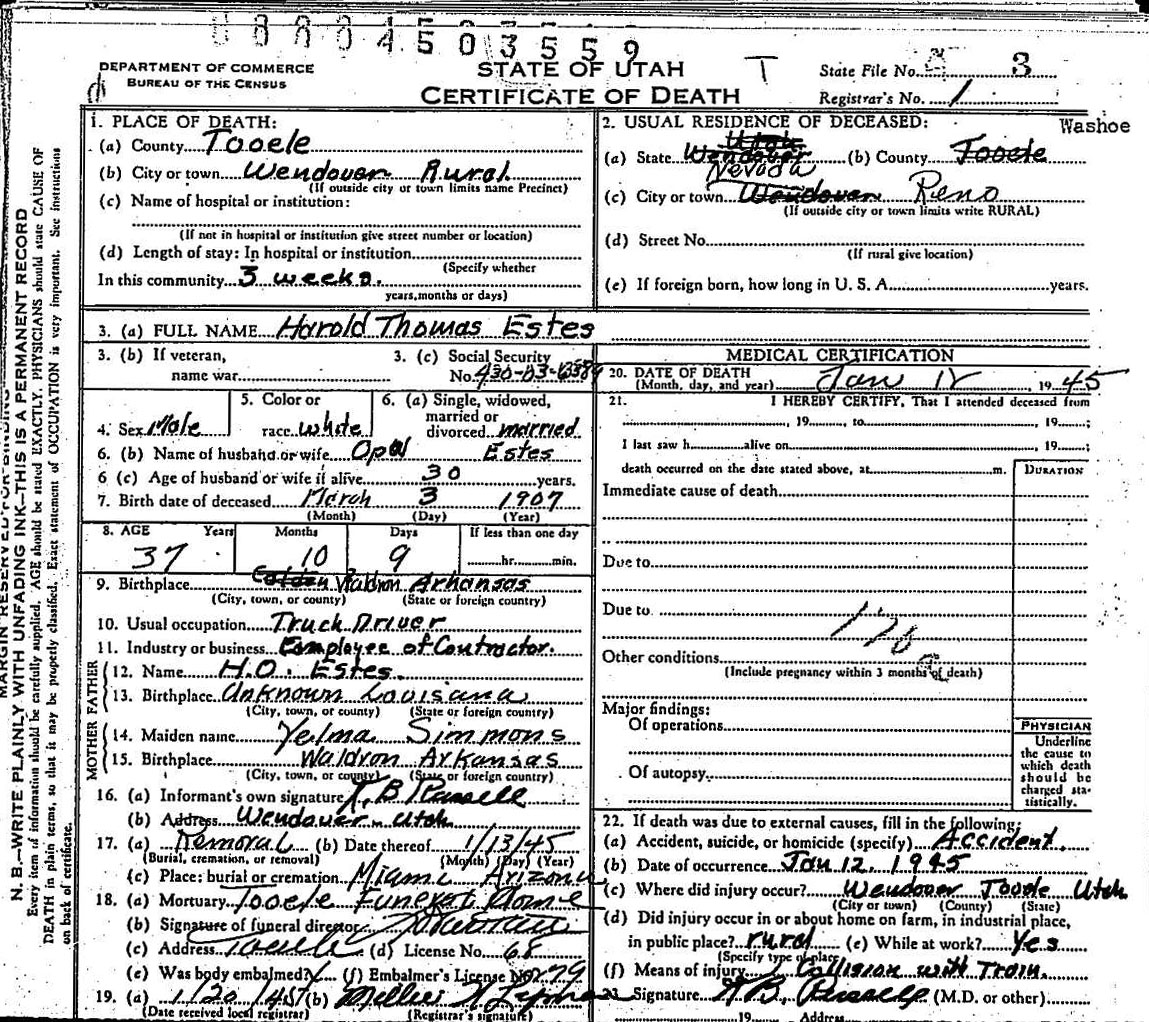 0 8 8 8 4 5 0 3 5 5 9
DEPARTMENT OF COMMERCE
BUREAU OF THE CENSUS
STATE OF UTAH
CERTIFICATE OF DEATH
T
State File No. 3
Registrar's No. 1
MARGIN RESERVED FOR BINDING
N. B.—WRITE PLAINLY WITH UNFADING INK—THIS IS A PERMANENT RECORD
Every item of information should be carefully supplied. AGE should be stated EXACTLY. PHYSICIANS should state CAUSE OF
DEATH in plain terms, so that it may be properly classified. Exact statement of OCCUPATION is very important. See instructions
on back of certificate.
1. PLACE OF DEATH:
(a) County Tooele
(b) City or town Wendover Rural
(If outside city or town limits name Precinct)
(c) Name of hospital or institution:
(If not in hospital or institution give street number or location)
(d) Length of stay: In hospital or institution
(Specify whether
In this community 3 weeks.
years, months or days)
2. USUAL RESIDENCE OF DECEASED:
Washoe
Utah
(a) State Wendover (b) County Tooele
Nevada
(c) City or town Wendover Reno
(If outside city or town limits write RURAL)
(d) Street No.
(If rural give location)
(e) If foreign born, how long in U. S. A. years.
3. (a) FULL NAME Harold Thomas Estes
3. (b) If veteran,
name war
3. (c) Social Security
No. 430-03-
4. Sex Male
5. Color or
race white
6. (a) Single, widowed,
married or
divorced married
6. (b) Name of husband or wife Opal Estes
6 (c) Age of husband or wife if alive 30 years.
7. Birth date of deceased March 3 1907
(Month) (Day) (Year)
8. AGE Years Months Days If less than one day
37 10 9 hr. min.
9. Birthplace Waldron Arkansas
(City, town, or county) (State or foreign country)
10. Usual occupation Truck Driver
11. Industry or business Employee of Contractor.
FATHER
12. Name H.O. Estes.
13. Birthplace Unknown Louisiana
(City, town, or county) (State or foreign country)
MOTHER
14. Maiden name Velma Simmons
15. Birthplace Waldron Arkansas
(City, town, or county) (State or foreign country)
16. (a) Informant's own signature B Russell
(b) Address Wendover Utah
17. (a) Removal (b) Date thereof 1/13/45
(Burial, cremation, or removal) (Month) (Day) (Year)
(c) Place: burial or cremation Miami Arizona
18. (a) Mortuary Tooele Funeral Home
(b) Signature of funeral director
(c) Address Tooele (d) License No. 68
(e) Was body embalmed? (f) Embalmer's License No. 279
19. (a) 1/20/45 (b) Millie
(Date received local registrar) (Registrar's signature)
MEDICAL CERTIFICATION
20. DATE OF DEATH
(Month, day, and year) Jan 12, 1945
21. I HEREBY CERTIFY, That I attended deceased from
, 19 , to , 19 ;
I last saw h alive on , 19 ;
death occurred on the date stated above, at m.
DURATION
Immediate cause of death
Due to
Due to
170
Other conditions
(Include pregnancy within 3 months of death)
Major findings:
Of operations
Of autopsy
PHYSICIAN
Underline
the cause to
which death
should be
charged sta-
tistically.
22. If death was due to external causes, fill in the following:
(a) Accident, suicide, or homicide (specify) Accident.
(b) Date of occurrence Jan 12, 1945
(c) Where did injury occur? Wendover Tooele Utah
(City or town) (County) (State)
(d) Did injury occur in or about home on farm, in industrial place,
in public place? rural (e) While at work? Yes
(Specify type of place)
(f) Means of injury Collision with Train.
23. Signature B. Russell (M.D. or other)
19 Address